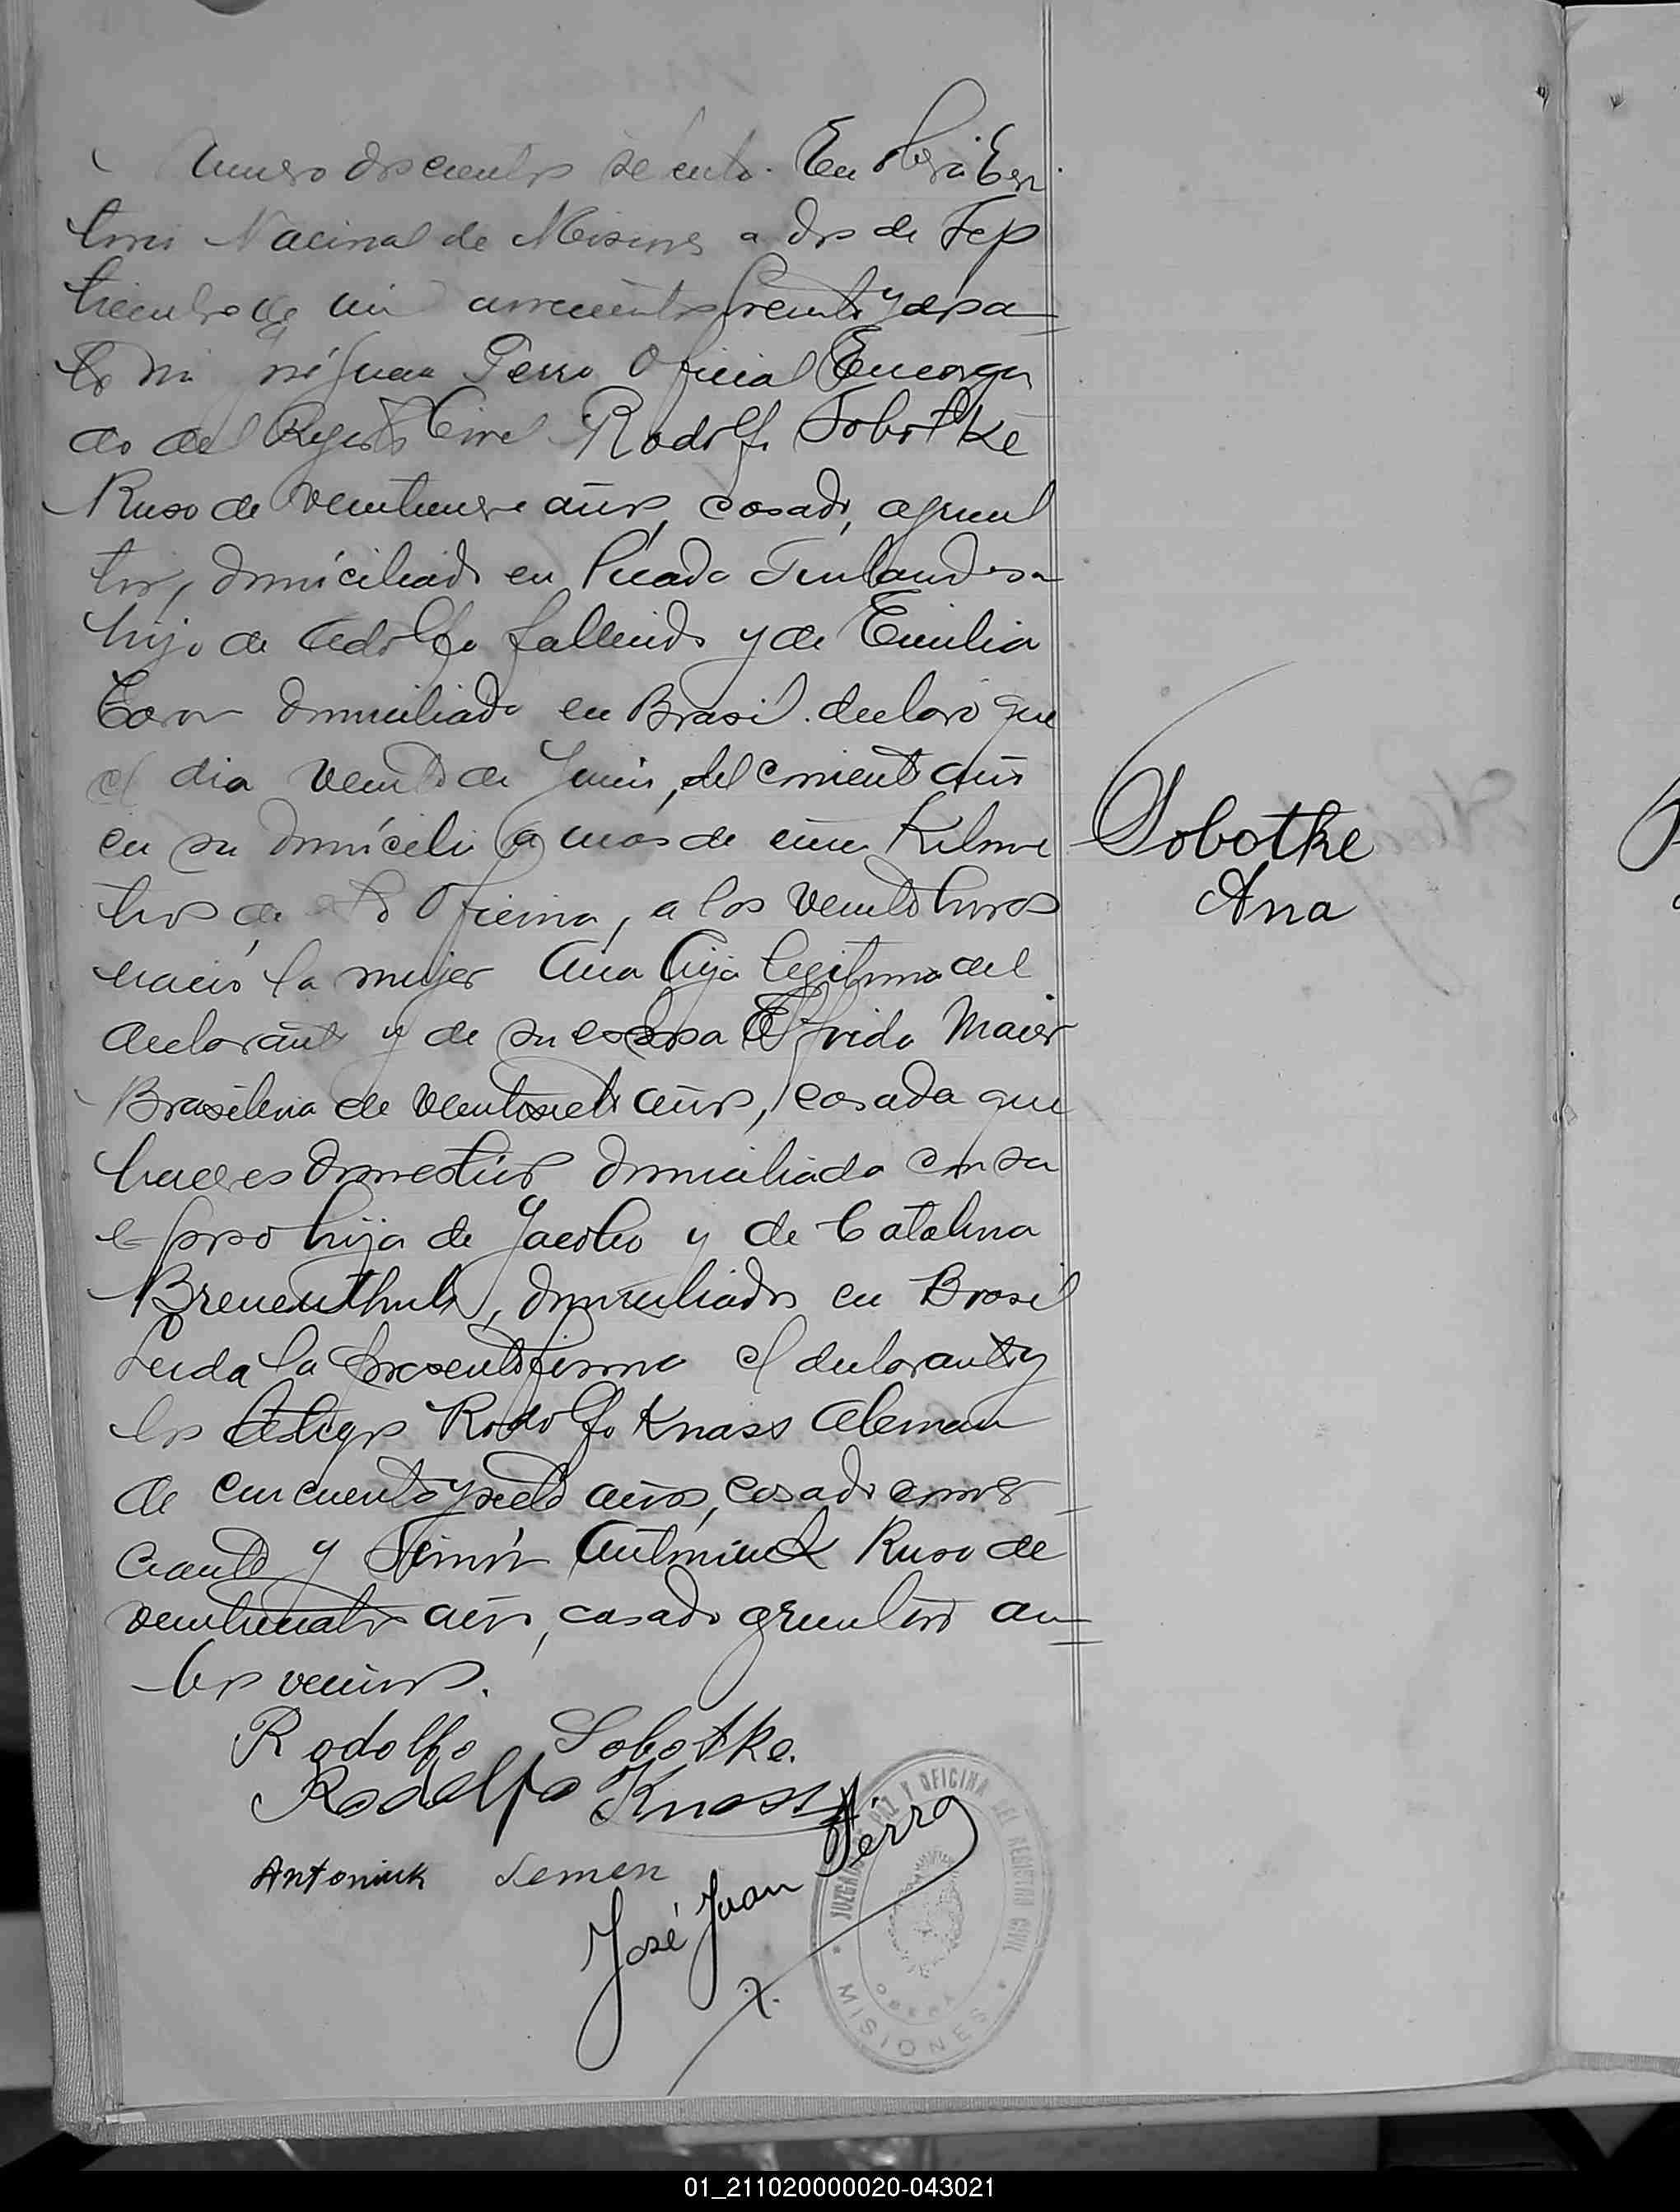 Numero doscientos sesenta. En Oberá Terri
torio Nacional de Misiones a dos de Sep
tiembre de mil novecientos treinta y dos an
te mi José Juan Perro Oficial Encarga
do del Registro Civil Rodolfo Sobotke
Ruso de veintinueve años, casado, agricul
tor, domiciliado en Picada Finlandesa
hijo de Adolfo fallecido y de Emilia
domiciliada en Brasil. declaró que
el dia veinte de Junio, del corriente año
en su domicilio a mas de cinco Kilóme
tros de esta Oficina, a las veinte horas
nació la mujer Ana hija legítima del
declarante y de su esposa Elfrida Maier
Brasileña de veintisiete años, casada que
haceres domesticos domiciliada con su
esposo hija de Jacobo y de Catalina
domiciliados en Brasil
Leida la presente firma el declarante y
los testigos Rodolfo Knass Aleman
de cincuenta y siete años, casado comer
ciante y Simón Antoniuk Ruso de
veinticuatro años, casado agricultor am
bos vecinos.
Sobotke
Ana
Rodolfo Sobotke.
Rodolfo Knass
Antoniuk Semen
José Juan Pérro
JUZGADO DE PAZ Y OFICINA DEL REGISTRO CIVIL
OBERÁ
MISIONES
01_211020000020-043021